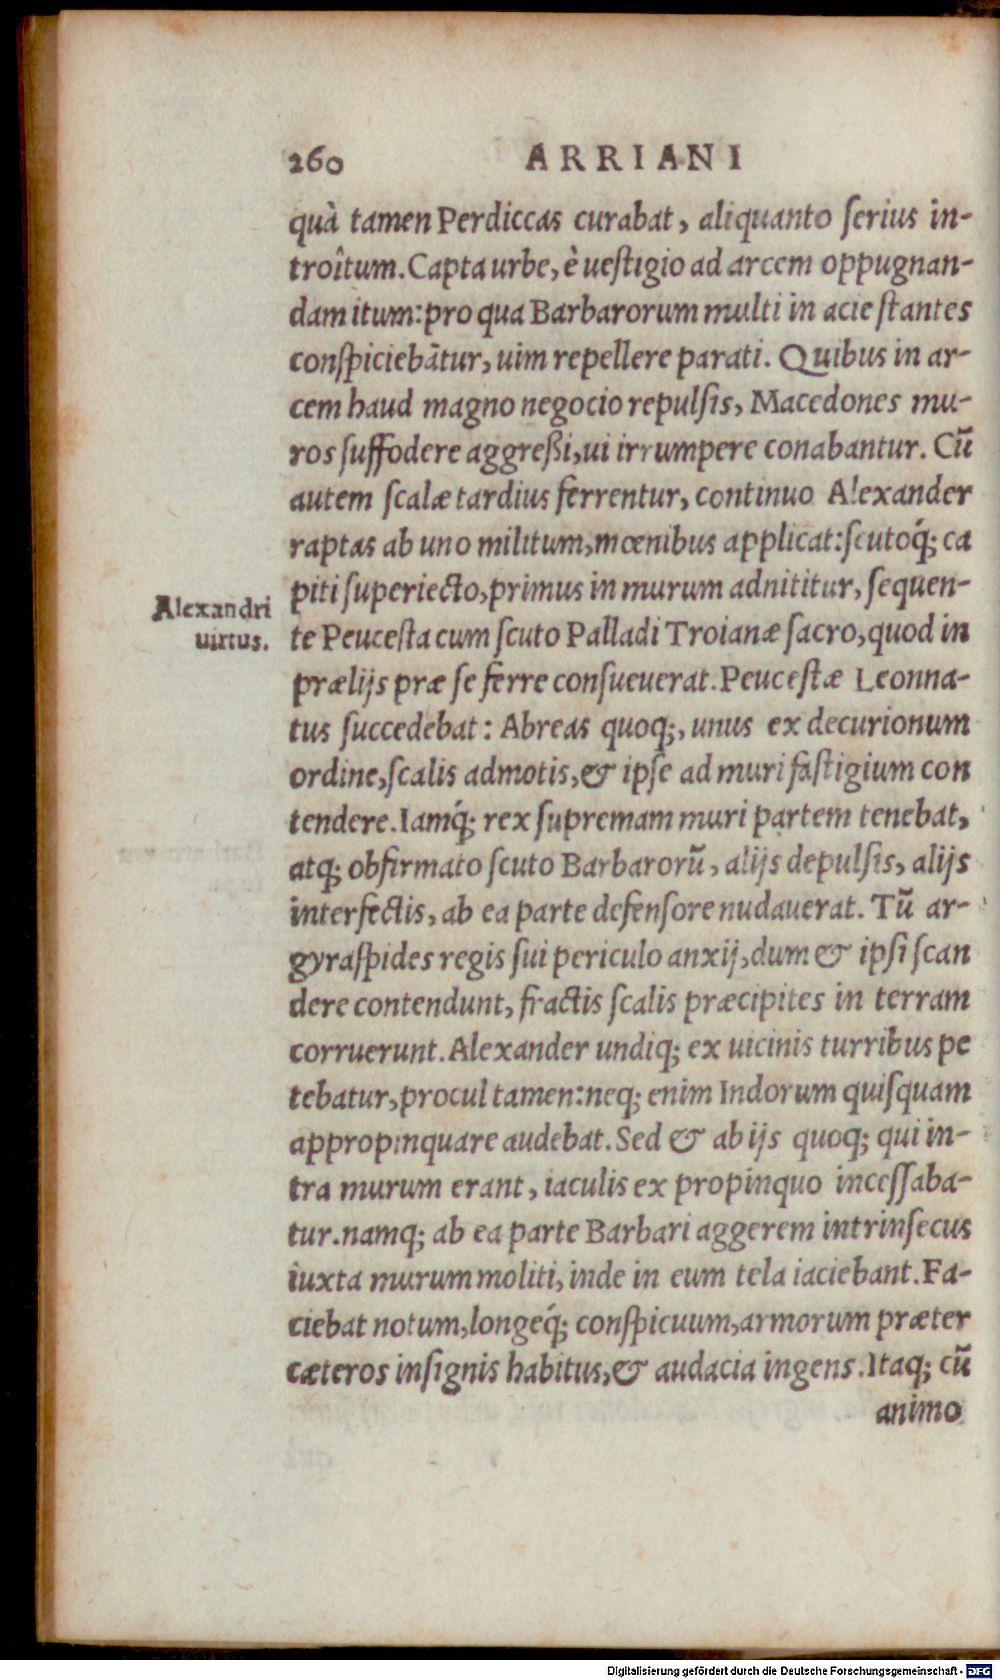 260 ARRIANI
quà tamen Perdiccas curabat, aliquanto ſerius in-
troîtum. Capta urbe, è ueſtigio ad arcem oppugnan-
dam itum: pro qua Barbarorum multi in acie ſtantes
conſpiciebātur, uim repellere parati. Quibus in ar-
cem haud magno negocio repulſis, Macedones mu-
ros ſuffodere aggreßi, ui irrumpere conabantur. Cū
autem ſcalæ tardius ferrentur, continuo Alexander
raptas ab uno militum, mœnibus applicat: ſcutoq́; ca
piti ſuperiecto, primus in murum adnititur, ſequen-
Alexandri
uirtus.
te Peuceſta cum ſcuto Palladi Troianæ ſacro, quod in
prælijs præ ſe ferre conſueuerat. Peuceſtæ Leonna-
tus ſuccedebat: Abreas quoq;, unus ex decurionum
ordine, ſcalis admotis, & ipſe ad muri faſtigium con
tendere. Iamq́; rex ſupremam muri partem tenebat,
atq; obfirmato ſcuto Barbarorū, alijs depulſis, alijs
interfectis, ab ea parte defenſore nudauerat. Tū ar-
gyraſpides regis ſui periculo anxij, dum & ipſi ſcan
dere contendunt, fractis ſcalis præcipites in terram
corruerunt. Alexander undiq; ex uicinis turribus pe
tebatur, procul tamen: neq; enim Indorum quiſquam
appropinquare audebat. Sed & ab ijs quoq; qui in-
tra murum erant, iaculis ex propinquo inceſſaba-
tur. namq; ab ea parte Barbari aggerem intrinſecus
iuxta murum moliti, inde in eum tela iaciebant. Fa-
ciebat notum, longeq́; conſpicuum, armorum præter
cæteros inſignis habitus, & audacia ingens. Itaq; cū
animo
Digitalisierung gefördert durch die Deutsche Forschungsgemeinschaft - DFG